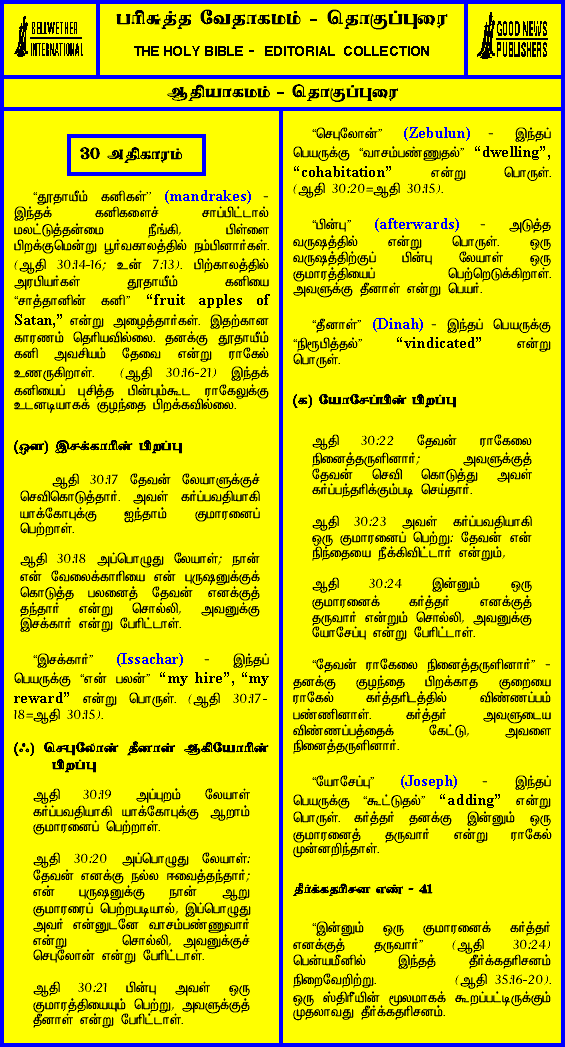 BELLWETHER
INTERNATIONAL
பரிசுத்த வேதாகமம் – தொகுப்புரை
THE HOLY BIBLE - EDITORIAL COLLECTION
GOOD NEWS
PUBLISHERS
ஆதியாகமம் – தொகுப்புரை
30 அதிகாரம்
“தூதாயீம் கனிகள்” (mandrakes) -
இந்தக் கனிகளைச் சாப்பிட்டால்
மலட்டுத்தன்மை நீங்கி, பிள்ளை
பிறக்குமென்று பூர்வகாலத்தில் நம்பினார்கள்.
(ஆதி 30:14-16; உன் 7:13). பிற்காலத்தில்
அரபியர்கள் தூதாயீம் கனியை
“சாத்தானின் கனி” “fruit apples of
Satan,” என்று அழைத்தார்கள். இதற்கான
காரணம் தெரியவில்லை. தனக்கு தூதாயீம்
கனி அவசியம் தேவை என்று ராகேல்
உணருகிறாள். (ஆதி 30:16-21) இந்தக்
கனியைப் புசித்த பின்பும்கூட ராகேலுக்கு
உடனடியாகக் குழந்தை பிறக்கவில்லை.
(ஒள) இசக்காரின் பிறப்பு
ஆதி 30:17 தேவன் லேயாளுக்குச்
செவிகொடுத்தார். அவள் கர்ப்பவதியாகி
யாக்கோபுக்கு ஐந்தாம் குமாரனைப்
பெற்றாள்.
ஆதி 30:18 அப்பொழுது லேயாள்; நான்
என் வேலைக்காரியை என் புருஷனுக்குக்
கொடுத்த பலனைத் தேவன் எனக்குத்
தந்தார் என்று சொல்லி, அவனுக்கு
இசக்கார் என்று பேரிட்டாள்.
“இசக்கார்” (Issachar) - இந்தப்
பெயருக்கு “என் பலன்” “my hire”, “my
reward” என்று பொருள். (ஆதி 30:17-
18=ஆதி 30:15).
(ஃ) செபுலோன் தீனாள் ஆகியோரின்
பிறப்பு
ஆதி 30:19 அப்புறம் லேயாள்
கர்ப்பவதியாகி யாக்கோபுக்கு ஆறாம்
குமாரனைப் பெற்றாள்.
ஆதி 30:20 அப்பொழுது லேயாள்:
தேவன் எனக்கு நல்ல ஈவைத்தந்தார்;
என் புருஷனுக்கு நான் ஆறு
குமாரரைப் பெற்றபடியால், இப்பொழுது
அவர் என்னுடனே வாசம்பண்ணுவார்
என்று சொல்லி, அவனுக்குச்
செபுலோன் என்று பேரிட்டாள்.
ஆதி 30:21 பின்பு அவள் ஒரு
குமாரத்தியையும் பெற்று, அவளுக்குத்
தீனாள் என்று பேரிட்டாள்.
“செபுலோன்” (Zebulun) - இந்தப்
பெயருக்கு “வாசம்பண்ணுதல்” “dwelling”,
“cohabitation” என்று பொருள்.
(ஆதி 30:20=ஆதி 30:15).
“பின்பு” (afterwards) - அடுத்த
வருஷத்தில் என்று பொருள். ஒரு
வருஷத்திற்குப் பின்பு லேயாள் ஒரு
குமாரத்தியைப் பெற்றெடுக்கிறாள்.
அவளுக்கு தீனாள் என்று பெயர்.
“தீனாள்” (Dinah) - இந்தப் பெயருக்கு
“நிரூபித்தல்” “vindicated” என்று
பொருள்.
(க) யோசேப்பின் பிறப்பு
ஆதி 30:22 தேவன் ராகேலை
நினைத்தருளினார்; அவளுக்குத்
தேவன் செவி கொடுத்து அவள்
கர்ப்பந்தரிக்கும்படி செய்தார்.
ஆதி 30:23 அவள் கர்ப்பவதியாகி
ஒரு குமாரனைப் பெற்று: தேவன் என்
நிந்தையை நீக்கிவிட்டார் என்றும்,
ஆதி 30:24 இன்னும் ஒரு
குமாரனைக் கர்த்தர் எனக்குத்
தருவார் என்றும் சொல்லி, அவனுக்கு
யோசேப்பு என்று பேரிட்டாள்.
“தேவன் ராகேலை நினைத்தருளினார்” -
தனக்கு குழந்தை பிறக்காத குறையை
ராகேல் கர்த்தரிடத்தில் விண்ணப்பம்
பண்ணினாள். கர்த்தர் அவளுடைய
விண்ணப்பத்தைக் கேட்டு, அவளை
நினைத்தருளினார்.
“யோசேப்பு” (Joseph) - இந்தப்
பெயருக்கு “கூட்டுதல்” “adding” என்று
பொருள். கர்த்தர் தனக்கு இன்னும் ஒரு
குமாரனைத் தருவார் என்று ராகேல்
முன்னறிந்தாள்.
தீர்க்கதரிசன எண் - 41
“இன்னும் ஒரு குமாரனைக் கர்த்தர்
எனக்குத் தருவார்” (ஆதி 30:24)
பென்யமீனில் இந்தத் தீர்க்கதரிசனம்
நிறைவேறிற்று. (ஆதி 35:16-20).
ஒரு ஸ்திரீயின் மூலமாகக் கூறப்பட்டிருக்கும்
முதலாவது தீர்க்கதரிசனம்.